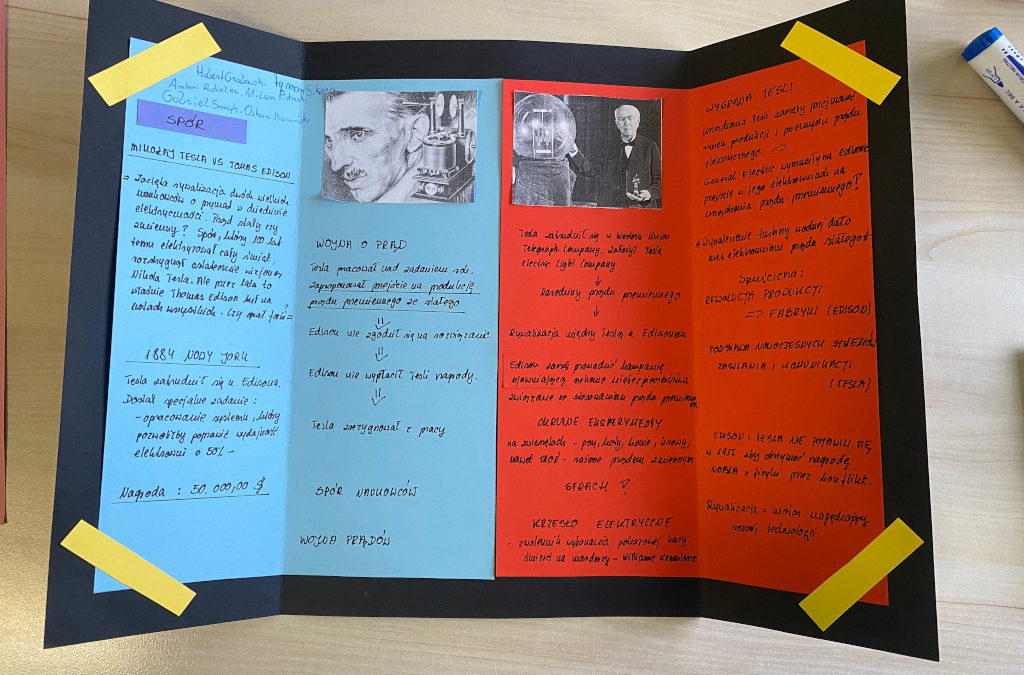 Hubert Grabowski, Tymon
Antoni Miłosz
Gabriel Oskar
SPÓR
MIKOŁAJ TESLA VS TOMAS EDISON
= Zacięta rywalizacja dwóch wielkich
naukowców o prymat w dziedzinie
elektryczności. Prąd stały czy
zmienny? Spór, który 100 lat
temu elektryzował cały świat,
rozstrzygnął ostatecznie wizjoner
Nikola Tesla. Ale przez lata to
właśnie Thomas Edison był na
ustach wszystkich. Czy miał rację?
1884 NOWY JORK
Tesla zatrudnił się u Edisona.
Dostał specjalne zadanie:
- opracowanie systemu, który
pozwoliłby poprawić wydajność
elektrowni o 50% -
Nagroda : 50.000,00 $
WOJNA O PRĄD
Tesla pracował nad zadaniem rok.
Zaproponował przejście na produkcję
prądu przemiennego ze stałego
⇓
Edison nie zgodził się na rozwiązanie
⇓
Edison nie wypłacił Tesli nagrody.
⇓
Tesla zrezygnował z pracy
SPÓR NAUKOWCÓW
WOJNA PRĄDÓW
Tesla zatrudnił się w Western Union
Telegraph Company, założył Tesla
Electric Light Company
↓
Narodziny prądu przemiennego
↓
Rywalizacja między Teslą a Edisonem
Edison zaczął prowadzić kampanię
ujawniającą rekome niebezpieczeństwa
związane ze stosowaniem prądu przemiennego
OKRUTNE EKSPERYMENTY
na zwierzętach - psy, koty, konie, krowy,
nawet SŁOŃ - rażone prądem zmiennym
STRACH !
KRZESŁO ELEKTRYCZNE
- zwolennik wykonania pokazowej kary
śmierci na mordercy - Williamie Kemmlerze
WYGRANA TESLI
urządzenia Tesli zaczęły przejmować
rynek produkcji i przemysłu prądu
elektrycznego. =>
General Electric wymusiły na Edisonie
przejście w jego elektrowniach na
urządzenia prądu przemiennego!
* Wynalezienie turbiny wodnej dało
kres elektrowniom prądu stałego
Spuścizna:
REWOLUCJA PRODUKCJI
=> FABRYKI (EDISON)
PODSTAWA NOWOCZESNYCH SYSTEMÓW
ZASILANIA I KOMUNIKACJI
(TESLA)
EDISON I TESLA NIE POJAWILI SIĘ
w 1915 aby otrzymać nagrodę
NOBLA z fizyki przez konflikt.
Rywalizacja = motor napędzający
rozwój technologii